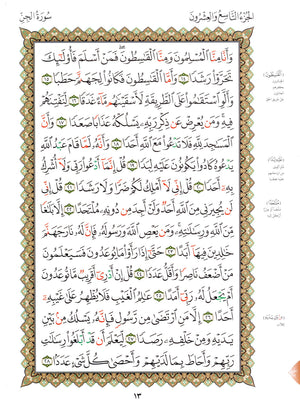 الجزء التاسع والعشرون
سورة الجن
وَأَنَّا مِنَّا الْمُسْلِمُونَ وَمِنَّا الْقَاسِطُونَ فَمَنْ أَسْلَمَ فَأُولَٰئِكَ
تَحَرَّوْا رَشَدًا ١٤ وَأَمَّا الْقَاسِطُونَ فَكَانُوا لِجَهَنَّمَ حَطَبًا ١٥
وَأَلَّوِ اسْتَقَامُوا عَلَى الطَّرِيقَةِ لَأَسْقَيْنَاهُم مَّاءً غَدَقًا ١٦ لِّنَفْتِنَهُمْ
فِيهِ وَمَن يُعْرِضْ عَن ذِكْرِ رَبِّهِ يَسْلُكْهُ عَذَابًا صَعَدًا ١٧ وَأَنَّ
الْمَسَاجِدَ لِلَّهِ فَلَا تَدْعُوا مَعَ اللَّهِ أَحَدًا ١٨ وَأَنَّهُ لَمَّا قَامَ عَبْدُ اللَّهِ
يَدْعُوهُ كَادُوا يَكُونُونَ عَلَيْهِ لِبَدًا ١٩ قُلْ إِنَّمَا أَدْعُو رَبِّي وَلَا أُشْرِكُ
بِهِ أَحَدًا ٢٠ قُلْ إِنِّي لَا أَمْلِكُ لَكُمْ ضَرًّا وَلَا رَشَدًا ٢١ قُلْ إِنِّي
لَن يُجِيرَنِي مِنَ اللَّهِ أَحَدٌ وَلَنْ أَجِدَ مِن دُونِهِ مُلْتَحَدًا ٢٢ إِلَّا بَلَاغًا
مِّنَ اللَّهِ وَرِسَالَاتِهِ وَمَن يَعْصِ اللَّهَ وَرَسُولَهُ فَإِنَّ لَهُ نَارَ جَهَنَّمَ
خَالِدِينَ فِيهَا أَبَدًا ٢٣ حَتَّىٰ إِذَا رَأَوْا مَا يُوعَدُونَ فَسَيَعْلَمُونَ
مَنْ أَضْعَفُ نَاصِرًا وَأَقَلُّ عَدَدًا ٢٤ قُلْ إِنْ أَدْرِي أَقَرِيبٌ مَّا تُوعَدُونَ
أَمْ يَجْعَلُ لَهُ رَبِّي أَمَدًا ٢٥ عَالِمُ الْغَيْبِ فَلَا يُظْهِرُ عَلَىٰ غَيْبِهِ
أَحَدًا ٢٦ إِلَّا مَنِ ارْتَضَىٰ مِن رَّسُولٍ فَإِنَّهُ يَسْلُكُ مِن بَيْنِ
يَدَيْهِ وَمِنْ خَلْفِهِ رَصَدًا ٢٧ لِّيَعْلَمَ أَن قَدْ أَبْلَغُوا رِسَالَاتِ
رَبِّهِمْ وَأَحَاطَ بِمَا لَدَيْهِمْ وَأَحْصَىٰ كُلَّ شَيْءٍ عَدَدًا ٢٨
١٣